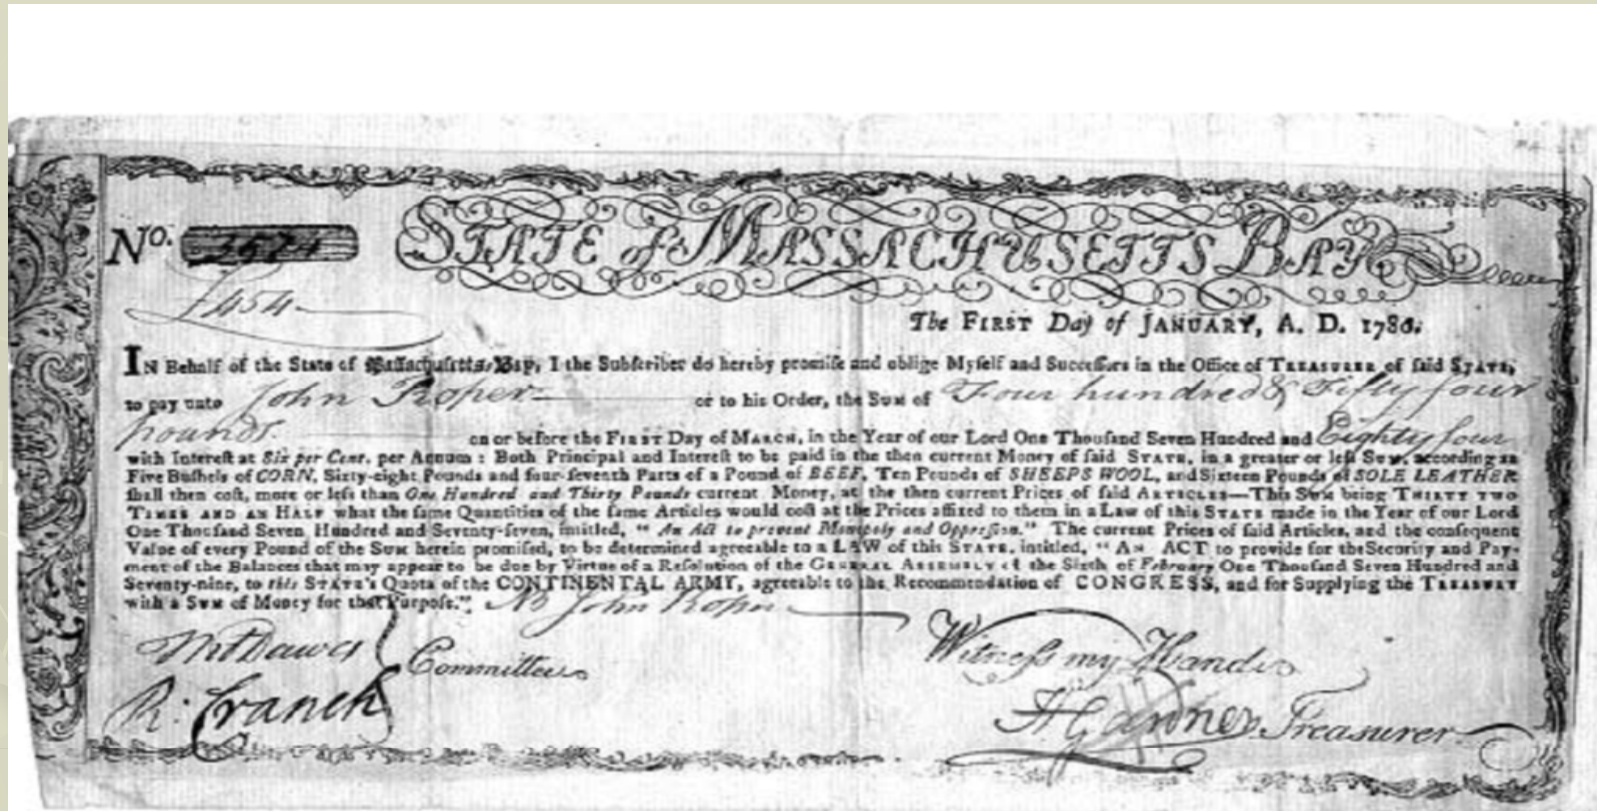 No.
STATE of MASSACHUSETTS BAY
£454
The FIRST Day of JANUARY, A. D. 1780.
IN Behalf of the State of Massachusetts-Bay, I the Subscriber do hereby promise and oblige Myself and Successors in the Office of TREASURER of said STATE,
to pay unto John Roper or to his Order, the Sum of Four hundred & Fifty four
pounds. on or before the FIRST Day of MARCH, in the Year of our Lord One Thousand Seven Hundred and Eighty four
with Interest at Six per Cent. per Annum: Both Principal and Interest to be paid in the then current Money of said STATE, in a greater or less SUM, according as
Five Bushels of CORN, Sixty-eight Pounds and four-seventh Parts of a Pound of BEEF, Ten Pounds of SHEEPS WOOL, and Sixteen Pounds of SOLE LEATHER
shall then cost, more or less than One Hundred and Thirty Pounds current Money, at the then current Prices of said ARTICLES—This SUM being THIRTY TWO
TIMES AND AN HALF what the same Quantities of the same Articles would cost at the Prices affixed to them in a Law of this STATE made in the Year of our Lord
One Thousand Seven Hundred and Seventy-seven, intitled, "An Act to prevent Monopoly and Oppression." The current Prices of said Articles, and the consequent
Value of every Pound of the SUM herein promised, to be determined agreeable to a LAW of this STATE, intitled, "AN ACT to provide for the Security and Pay-
ment of the Balances that may appear to be due by Virtue of a Resolution of the GENERAL ASSEMBLY of the Sixth of February One Thousand Seven Hundred and
Seventy-nine, to this STATE's Quota of the CONTINENTAL ARMY, agreeable to the Recommendation of CONGRESS, and for Supplying the TREASURY
with a SUM of Money for that Purpose." John Roper
Committee
Witness my Hand
R: Cranch
H Gardner Treasurer